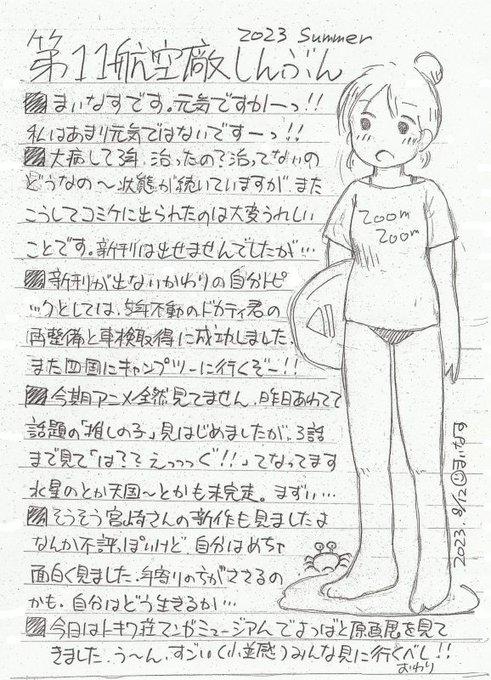 2023 Summer
第11航空廠しんぶん
まいなすです。元気ですかーっ!!
私はあまり元気ではないですーっ!!
大病して3年、治ったの?治ってないの
どうなの〜状態が続いていますが、また
こうしてコミケに出られたのは大変うれしい
ことです。新刊は出せませんでしたが…
新刊が出ないかわりの自分トピ
ックとしては、5年不動のドカティ君の
再整備と車検取得に成功しました、
また四国にキャンプツーに行くぞー!!
今期アニメ全然見てません、昨日あわてて
話題の「推しの子」見はじめましたが、3話
まで見て「は??えっっっぐ!!」てなってます
水星のとか天国〜とかも未完走。まずい…
そうそう宮崎さんの新作も見ましたよ
なんか不評っぽいけど、自分はめちゃ
面白く見ました、年寄りの方がささるの
かも、自分はどう生きるか…
今日はトキワ荘マンガミュージアムでよつばと原画展を見て
きました、う〜ん、すごい(小並感)みんな見に行くべし!!
おわり
Zoom
Zoom
2023.8/12 まいなす